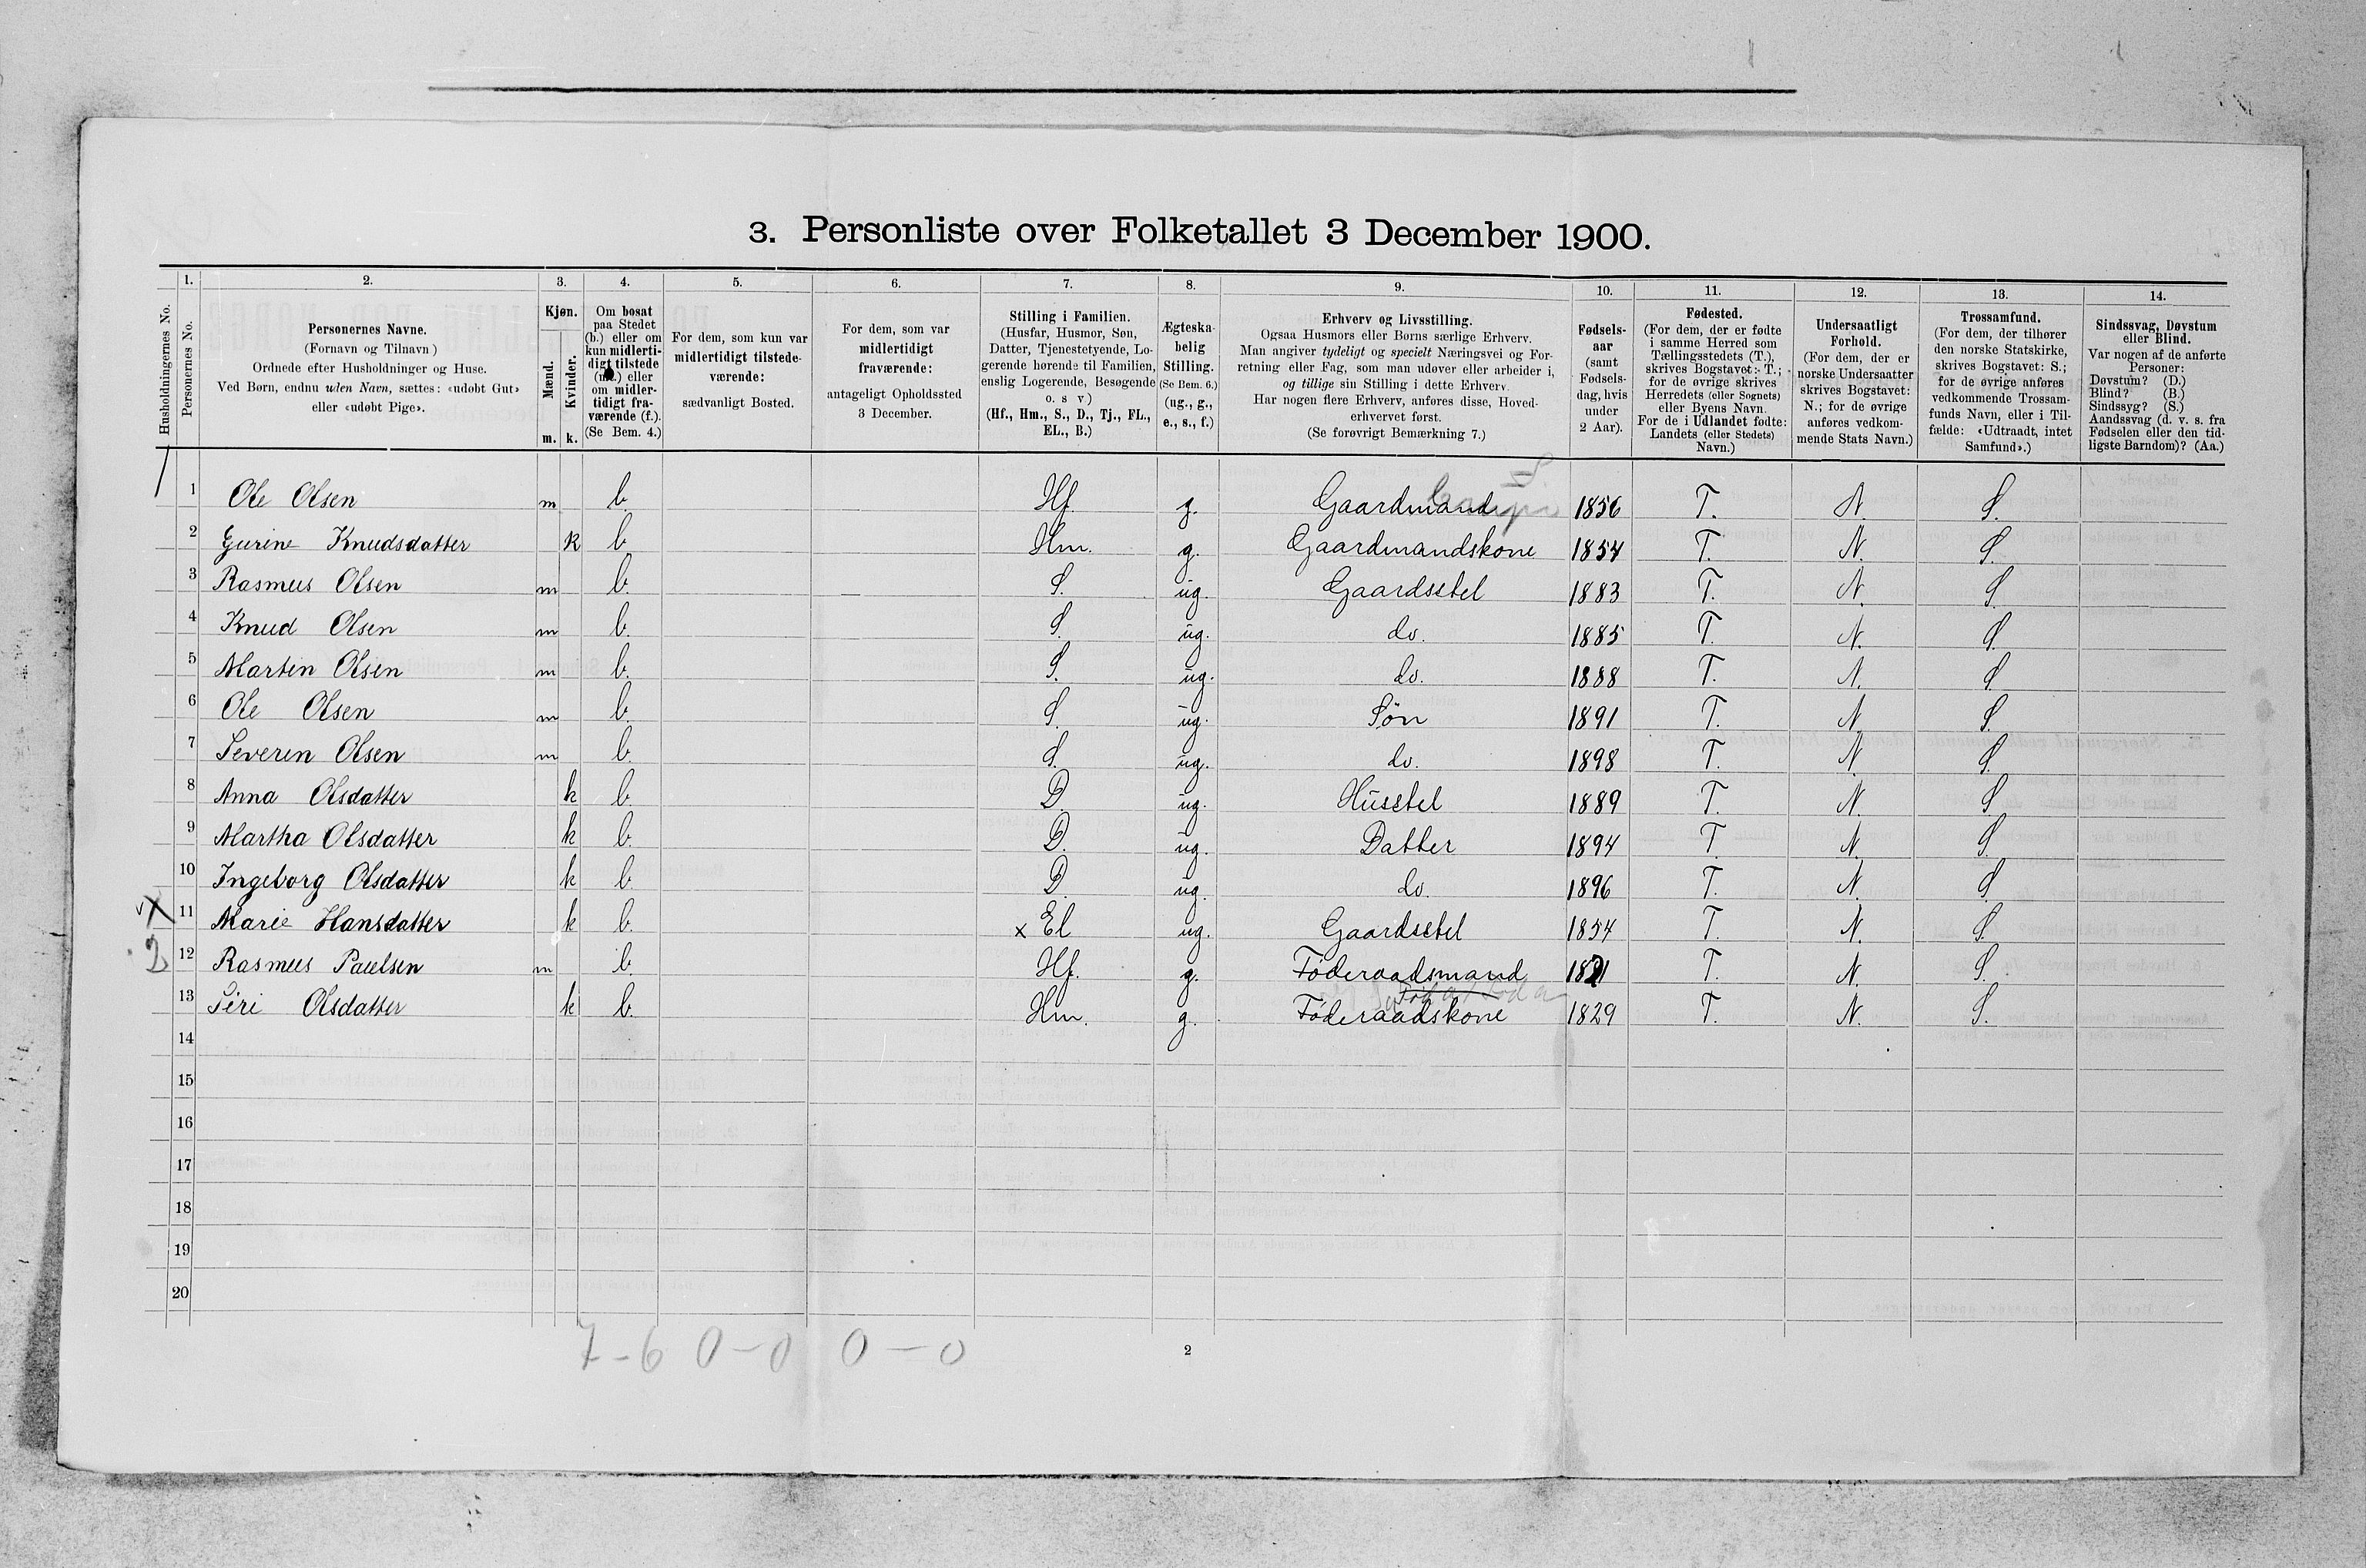 3. Personliste over Folketallet 3 December 1900.
1. 2. 3. 4. 5. 6. 7. 8. 9. 10. 11. 12. 13. 14.
Husholdningernes No.
Personernes No.
Personernes Navne.
(Fornavn og Tilnavn)
Ordnede efter Husholdninger og Huse.
Ved Børn, endnu uden Navn, sættes: «udøbt Gut»
eller «udøbt Pige».
Kjøn.
Mænd.
Kvinder.
m. k.
Om bosat
paa Stedet
(b.) eller om
kun midlerti-
digt tilstede
(mt.) eller
om midler-
tidigt fra-
værende (f.).
(Se Bem. 4.)
For dem, som kun var
midlertidigt tilstede-
værende:
sædvanligt Bosted.
For dem, som var
midlertidigt
fraværende:
antageligt Opholdssted
3 December.
Stilling i Familien.
(Husfar, Husmor, Søn,
Datter, Tjenestetyende, Lo-
gerende hørende til Familien,
enslig Logerende, Besøgende
o. s v)
(Hf., Hm., S., D., Tj., FL.,
EL., B.)
Ægteska-
belig
Stilling.
(Se Bem. 6.)
(ug., g.,
e., s., f.)
Erhverv og Livsstilling.
Ogsaa Husmors eller Børns særlige Erhverv.
Man angiver tydeligt og specielt Næringsvei og For-
retning eller Fag, som man udøver eller arbeider i,
og tillige sin Stilling i dette Erhverv.
Har nogen flere Erhverv, anføres disse, Hoved-
erhvervet først.
(Se forøvrigt Bemærkning 7.)
Fødsels-
aar
(samt
Fødsels-
dag, hvis
under
2 Aar).
Fødested.
(For dem, der er fødte
i samme Herred som
Tællingsstedets (T.),
skrives Bogstavet: T.;
for de øvrige skrives
Herredets (eller Sognets)
eller Byens Navn.
For de i Udlandet fødte:
Landets (eller Stedets)
Navn.)
Undersaatligt
Forhold.
(For dem, der er
norske Undersaatter
skrives Bogstavet:
N.; for de øvrige
anføres vedkom-
mende Stats Navn.)
Trossamfund.
(For dem, der tilhører
den norske Statskirke,
skrives Bogstavet: S.;
for de øvrige anføres
vedkommende Trossam-
funds Navn, eller i Til-
fælde: «Udtraadt, intet
Samfund».)
Sindssvag, Døvstum
eller Blind.
Var nogen af de anførte
Personer:
Døvstum? (D.)
Blind? (B.)
Sindssyg? (S.)
Aandssvag (d. v. s. fra
Fødselen eller den tid-
ligste Barndom)? (Aa.)
1 Ole Olsen m b. Hf. g. Gaardmand 1856 T. N. S.
2 Gurine Knudsdatter k b. Hm. g. Gaardmandskone 1854 T. N. S.
3 Rasmus Olsen m b. S. ug. Gaardsstel 1883 T. N. S.
4 Knud Olsen m b. S. ug. do. 1885 T. N. S.
5 Martin Olsen m b. S. ug. do. 1888 T. N. S.
6 Ole Olsen m b. S. ug. Søn 1891 T. N. S.
7 Severin Olsen m b. S. ug. do. 1898 T. N. S.
8 Anna Olsdatter k b. D. ug. Husstel 1889 T. N. S.
9 Martha Olsdatter k b. D. ug. Datter 1894 T. N. S.
10 Ingeborg Olsdatter k b. D. ug. do. 1896 T. N. S.
x 11 Marie Hansdatter k b. x El ug. Gaardsstel 1854 T. N. S.
2 12 Rasmus Paulsen m b. Hf. g. Føderaadsmand T. N. S.
13 Siri Olsdatter k b. Hm. g. Føderaadskone 1829 T. N. S.
14
15
16
17
18
19
20
7-6 0-0 0-0
2